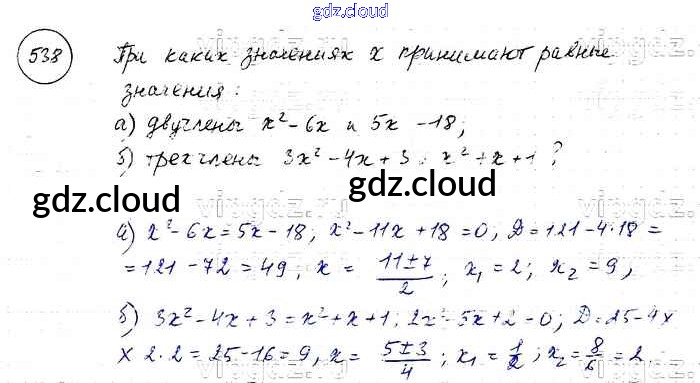 gdz.cloud
538 При каких значениях х принимают равные
значения:
а) двучлены x² - 6x и 5x - 18;
б) трехчлены 3x² - 4x + 3 и x² + x + 1?
gdz.cloud gdz.cloud
а) x² - 6x = 5x - 18; x² - 11x + 18 = 0, D = 121 - 4·18 =
= 121 - 72 = 49, x = (11±7)/2; x₁ = 2; x₂ = 9,
б) 3x² - 4x + 3 = x² + x + 1; 2x² - 5x + 2 = 0; D = 25 - 4×
× 2·2 = 25 - 16 = 9, x = (5±3)/4; x₁ = 1/2; x₂ = 8/6 = 2.